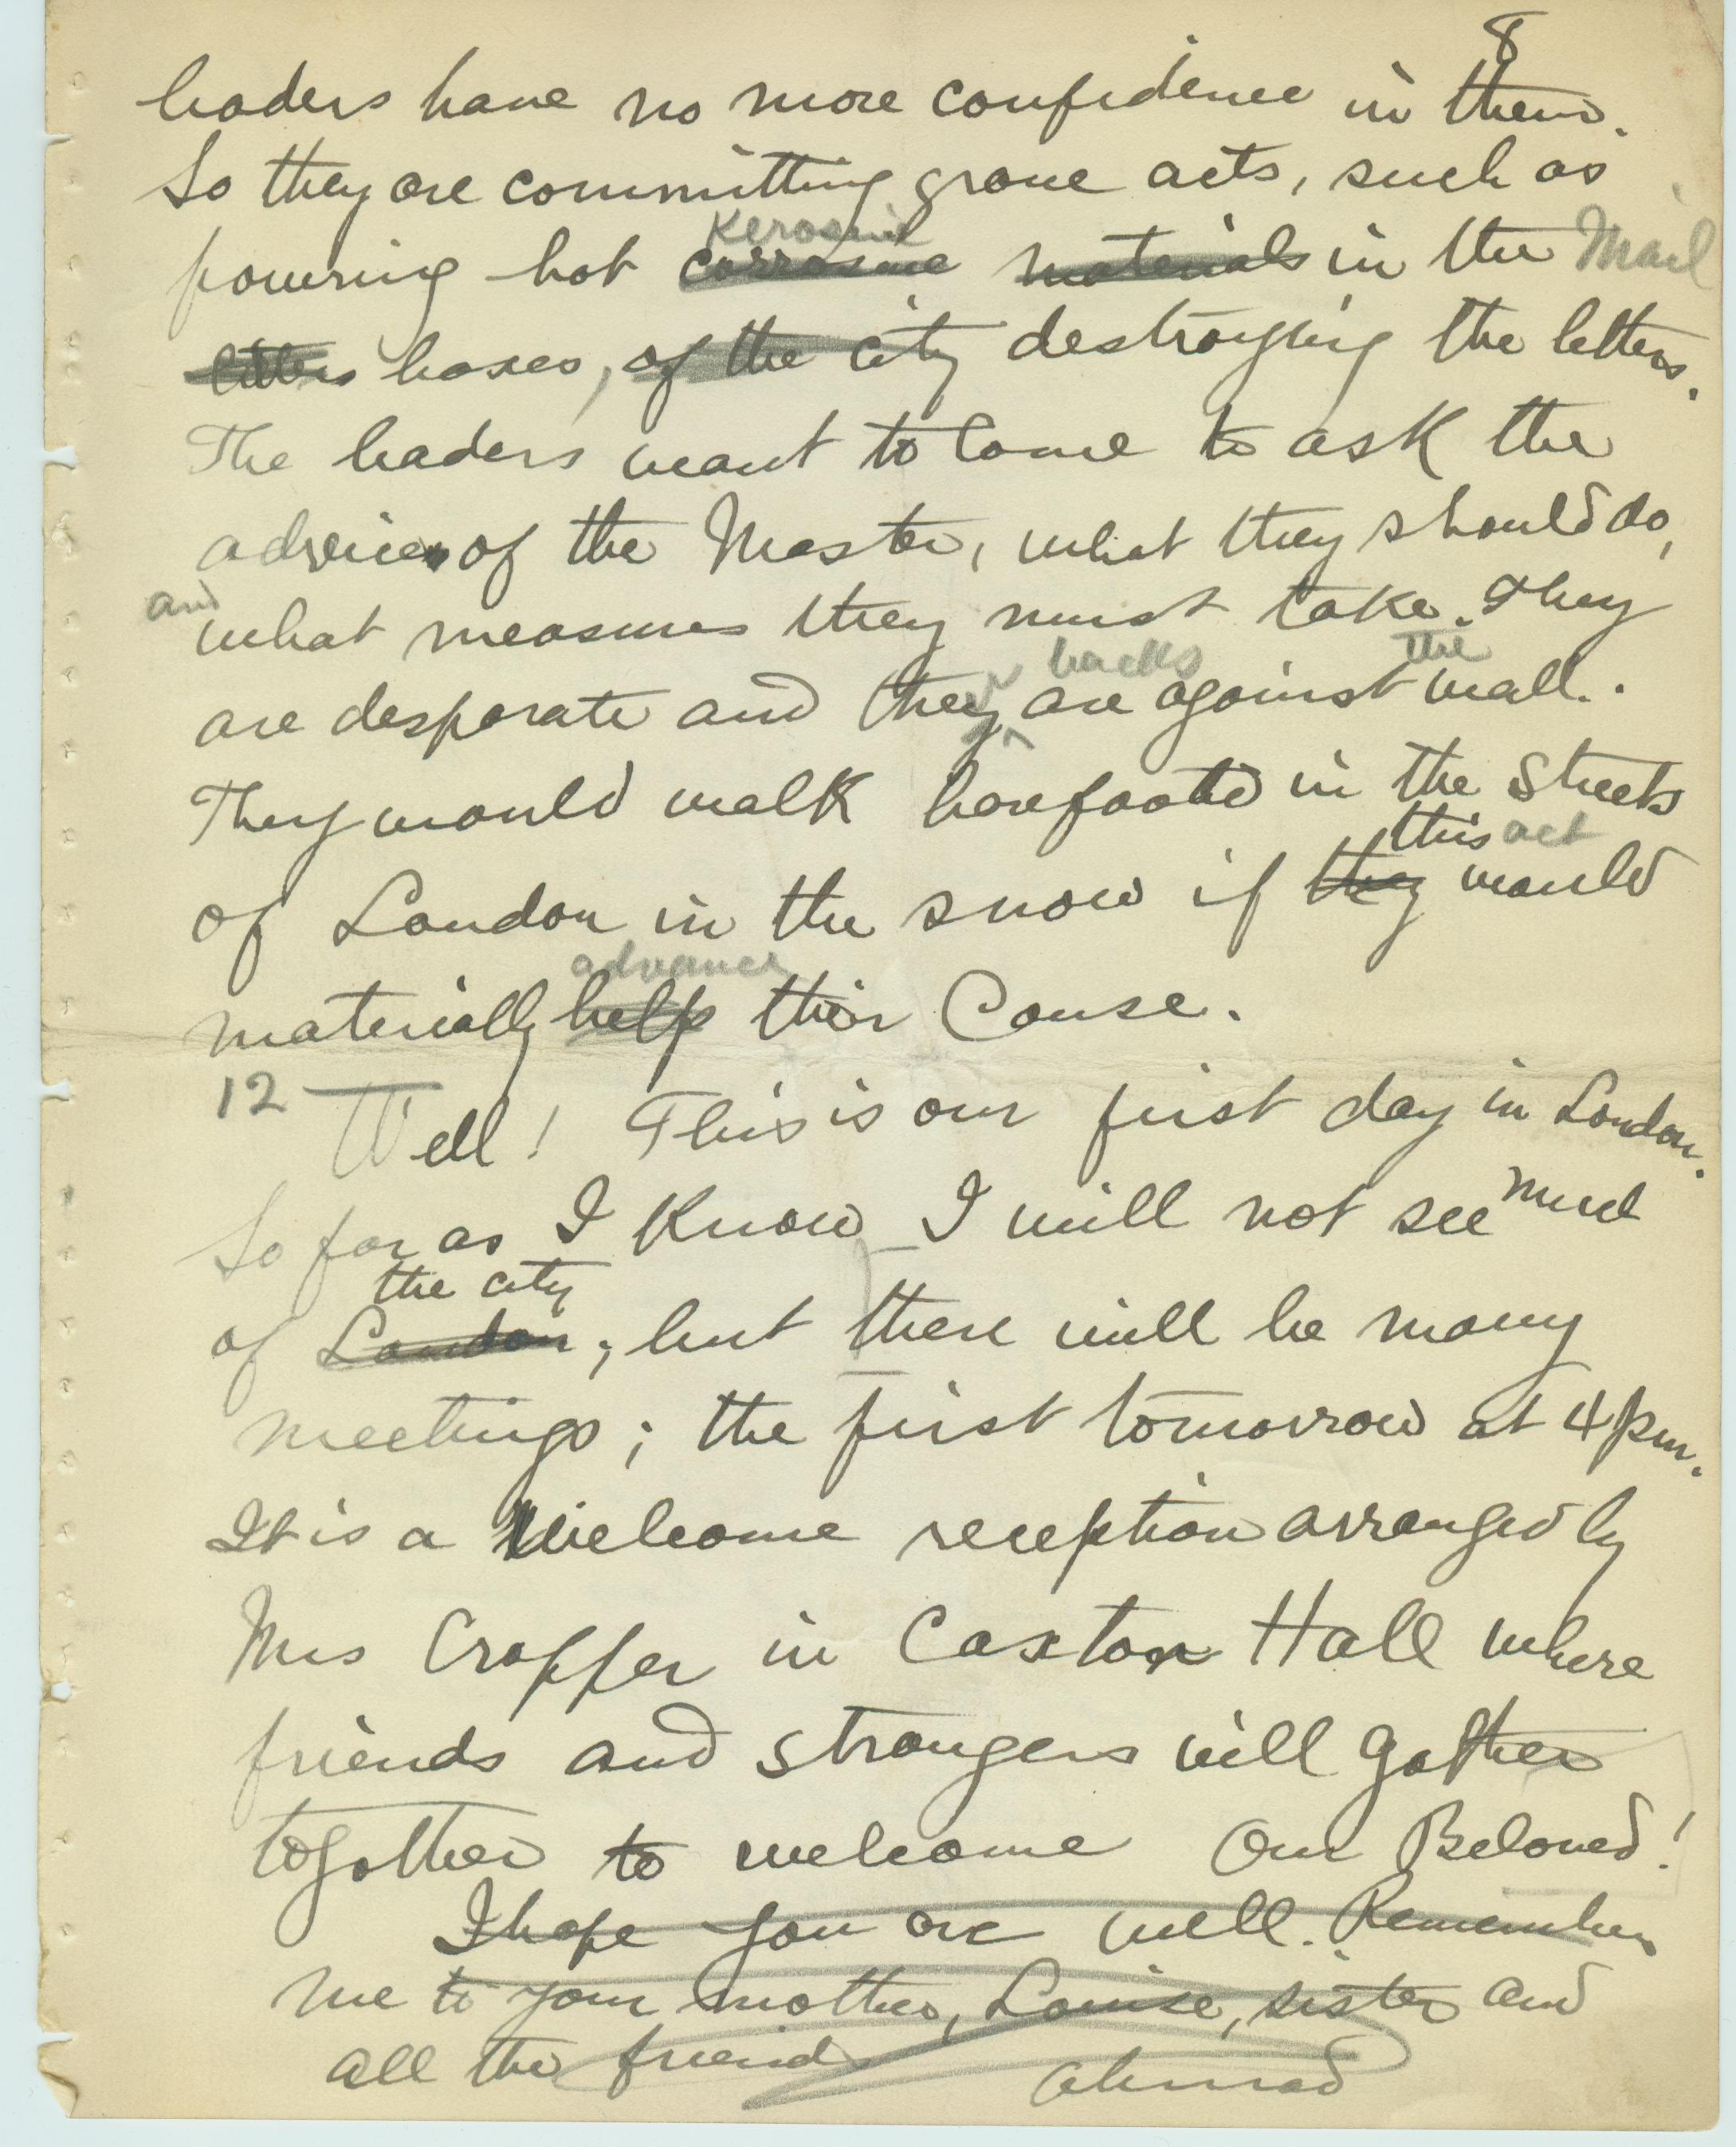 8
leaders have no more confidence in them.
So they are committing grave acts, such as
Kerosine
pouring hot corrosive materials in the Mail
letters boxes, of the city destroying the letters.
The leaders want to come to ask the
advice of the Master, what they should do,
and
what measures they must take. They
backs the
are desperate and their are against wall.
They would walk barefooted in the streets
this act
of London in the snow if they would
advance
materially help their Cause.
12 Well! This is our first day in London.
So far as I know I will not see much
the city
of London; but there will be many
meetings; the first tomorrow at 4 pm.
It is a Welcome reception arranged by
Mrs Cropper in Caxton Hall where
friends and strangers will gather
together to welcome Our Beloved!
I hope you are well. Remember
me to your mother, Louise, sister and
all the friends
Ahmad